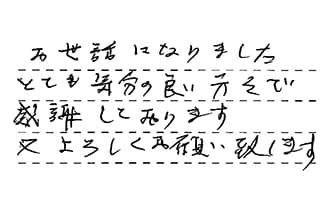 お世話になりました
とても気分の良い方々で
感謝しております
又よろしくお願い致します